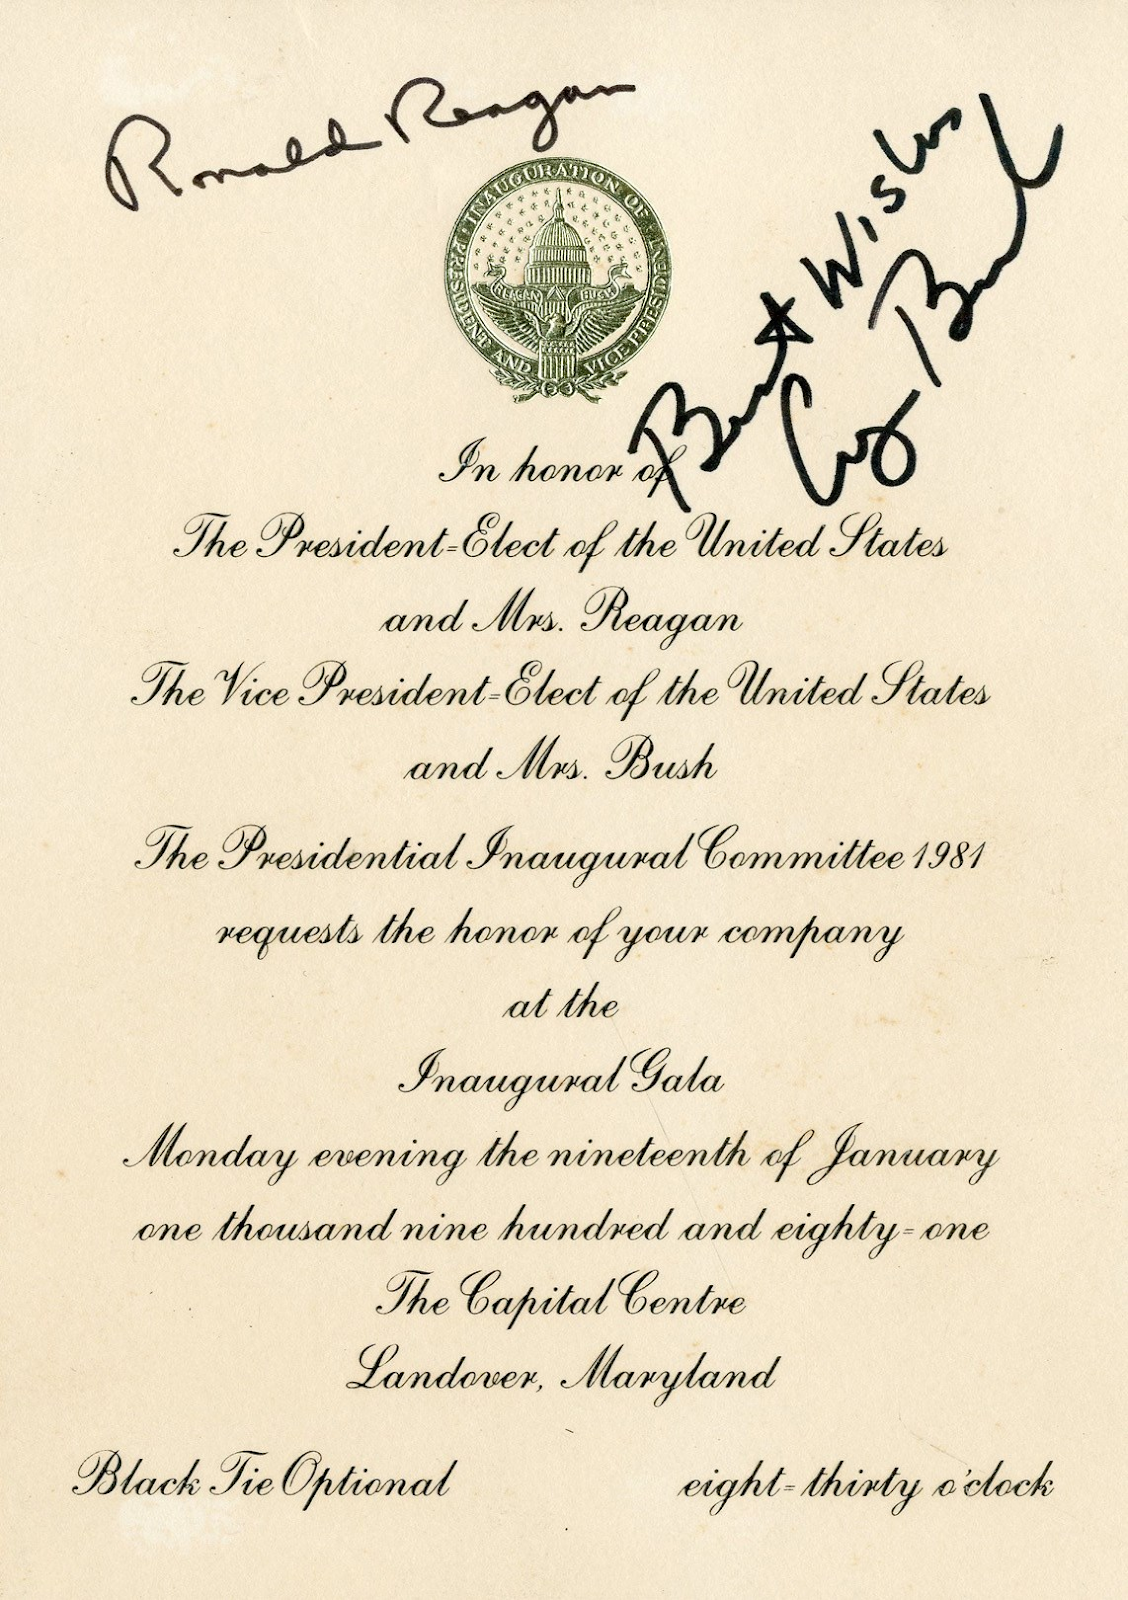 Ronald Reagan
Best Wishes
G Bush
INAUGURATION OF PRESIDENT AND VICE PRESIDENT
REAGAN BUSH
In honor of
The President-Elect of the United States
and Mrs. Reagan
The Vice President-Elect of the United States
and Mrs. Bush
The Presidential Inaugural Committee 1981
requests the honor of your company
at the
Inaugural Gala
Monday evening the nineteenth of January
one thousand nine hundred and eighty-one
The Capital Centre
Landover, Maryland
Black Tie Optional
eight-thirty o'clock